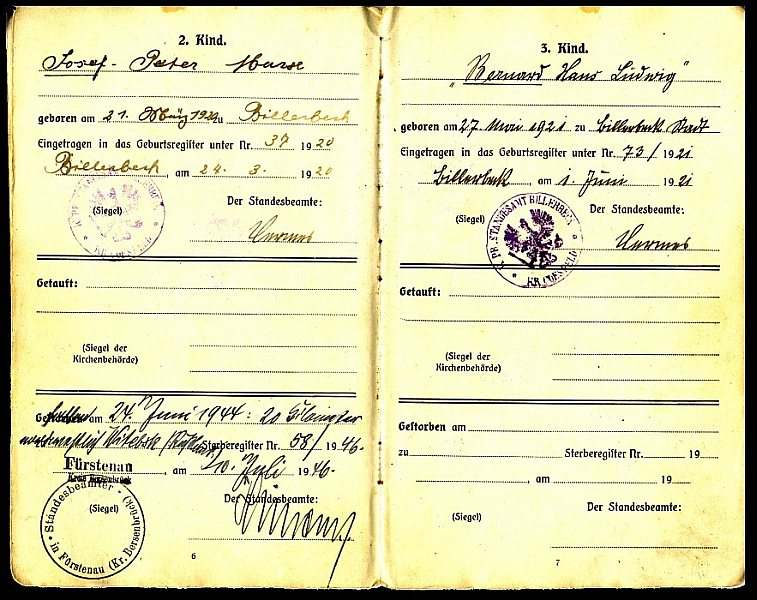 2. Kind.
Josef- Peter
geboren am 21. März 1920 zu Billerbeck
Eingetragen in das Geburtsregister unter Nr. 37 1920
Billerbeck, am 24. 3. 1920
(Siegel)
Der Standesbeamte:
Hermes
KR. COESFELD
Getauft:
(Siegel der
Kirchenbehörde)
Gefallen am 24. Juni 1944: 20 Kilometer
Witebsk Sterberegister Nr. 58/1946.
Fürstenau, am 10. Juli 1946.
Der Standesbeamte:
(Siegel)
Standesbeamter in Fürstenau (Kr. Bersenbrück)
6
3. Kind.
"Bernard Hans Ludwig"
geboren am 27 Mai 1921 zu Billerbeck Stadt
Eingetragen in das Geburtsregister unter Nr. 73/1921
Billerbeck, am 1. Juni 1921
(Siegel)
Der Standesbeamte:
Hermes
K. PR. STANDESAMT BILLERBECK
KR. COESFELD
Getauft:
(Siegel der
Kirchenbehörde)
Gestorben am
zu Sterberegister Nr. 19
, am 19
Der Standesbeamte:
(Siegel)
7